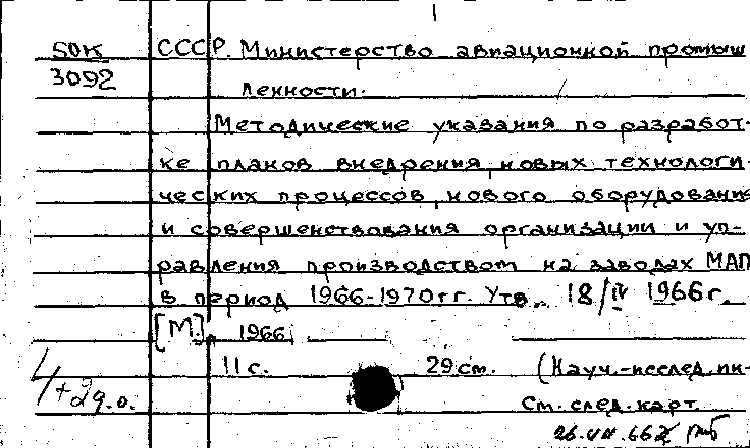 50К СССР. Министерство авиационной промыш
3092 ленности.
Методические указания по разработ-
ке планов внедрения новых технологи-
ческих процессов, нового оборудования
и совершенствования организации и уп-
равления производством на заводах МАП
в период 1966-1970 гг. Утв. 18/IV 1966г.
[М]., 1966
11 с. 29 см. (Науч.-исслед. ин-
4+2д.о.
См. след. карт.
26.VII.66